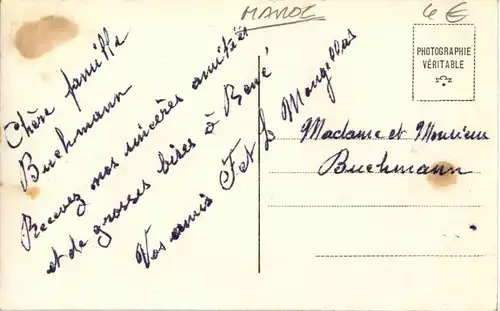 MAROC
6 €
PHOTOGRAPHIE
VÉRITABLE
Chère famille
Buchmann
Recevez nos sincères amitiés
et de grosses bises à René
Vos amis F et L Mongellas
Madame et Monsieur
Buchmann